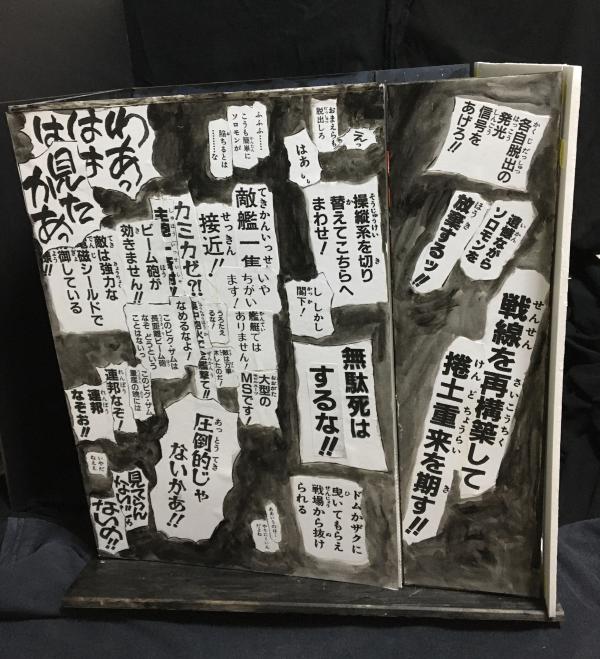 各自脱出の
発光
信号を
あげろ!!
遺憾ながら
ソロモンを
放棄するッ!!
戦線を再構築して
捲土重来を期す!!
えっ
おまえらも
脱出しろ
はぁ
ふふふ……
こうも簡単に
ソロモンが
陥ちるとは
……な
操縦系を切り
替えてこちらへ
まわせ!
し しかし
閣下!
無駄死は
するな!!
ドムかザクに
曳いてもらえ
戦場から抜け
られる
敵艦一隻
接近!!
いや
ちがい
ます!
艦艇では
ありません!
大型の
MSです!
カミカゼ?!
なめるなよ!
うろたえ
るな!
ビーム砲が
効きません!!
敵は強力な
磁シールドで
御している
わあっ
はあ
は見た
かあっ
このビグ・ザムは
長距離ビーム砲
なぞ どうという
ことはないっ
このビグ・ザム
量産の暁には
連邦なぞ!
連邦
なぞお!!
圧倒的じゃ
ないかあ!!
いやだ
ねえぇ
ないの!!